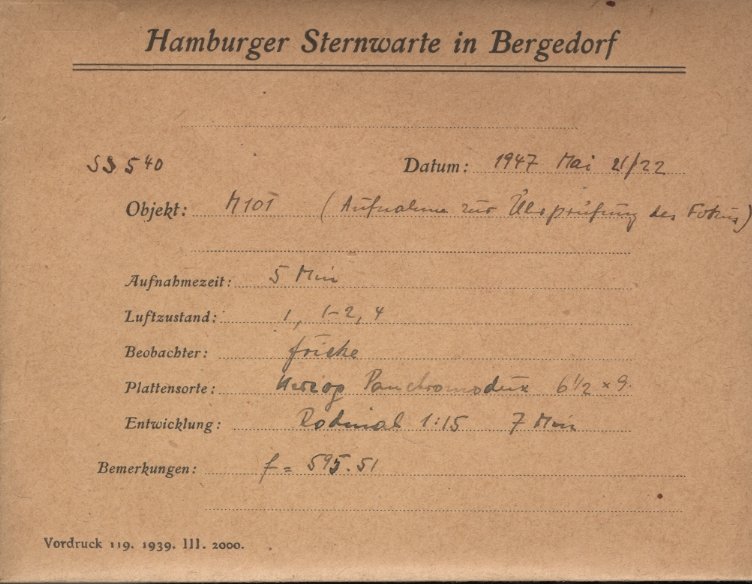 Hamburger Sternwarte in Bergedorf
SS 540 Datum: 1947 Mai 21/22
Objekt: M101 (Aufnahme zur Überprüfung des Fokus)
Aufnahmezeit: 5 Min
Luftzustand: 1, 1-2, 4
Beobachter: Fricke
Plattensorte: Herzog Panchromodux 6 1/2 × 9.
Entwicklung: Rodinal 1:15 7 Min
Bemerkungen: f = 595.51
Vordruck 119. 1939. III. 2000.